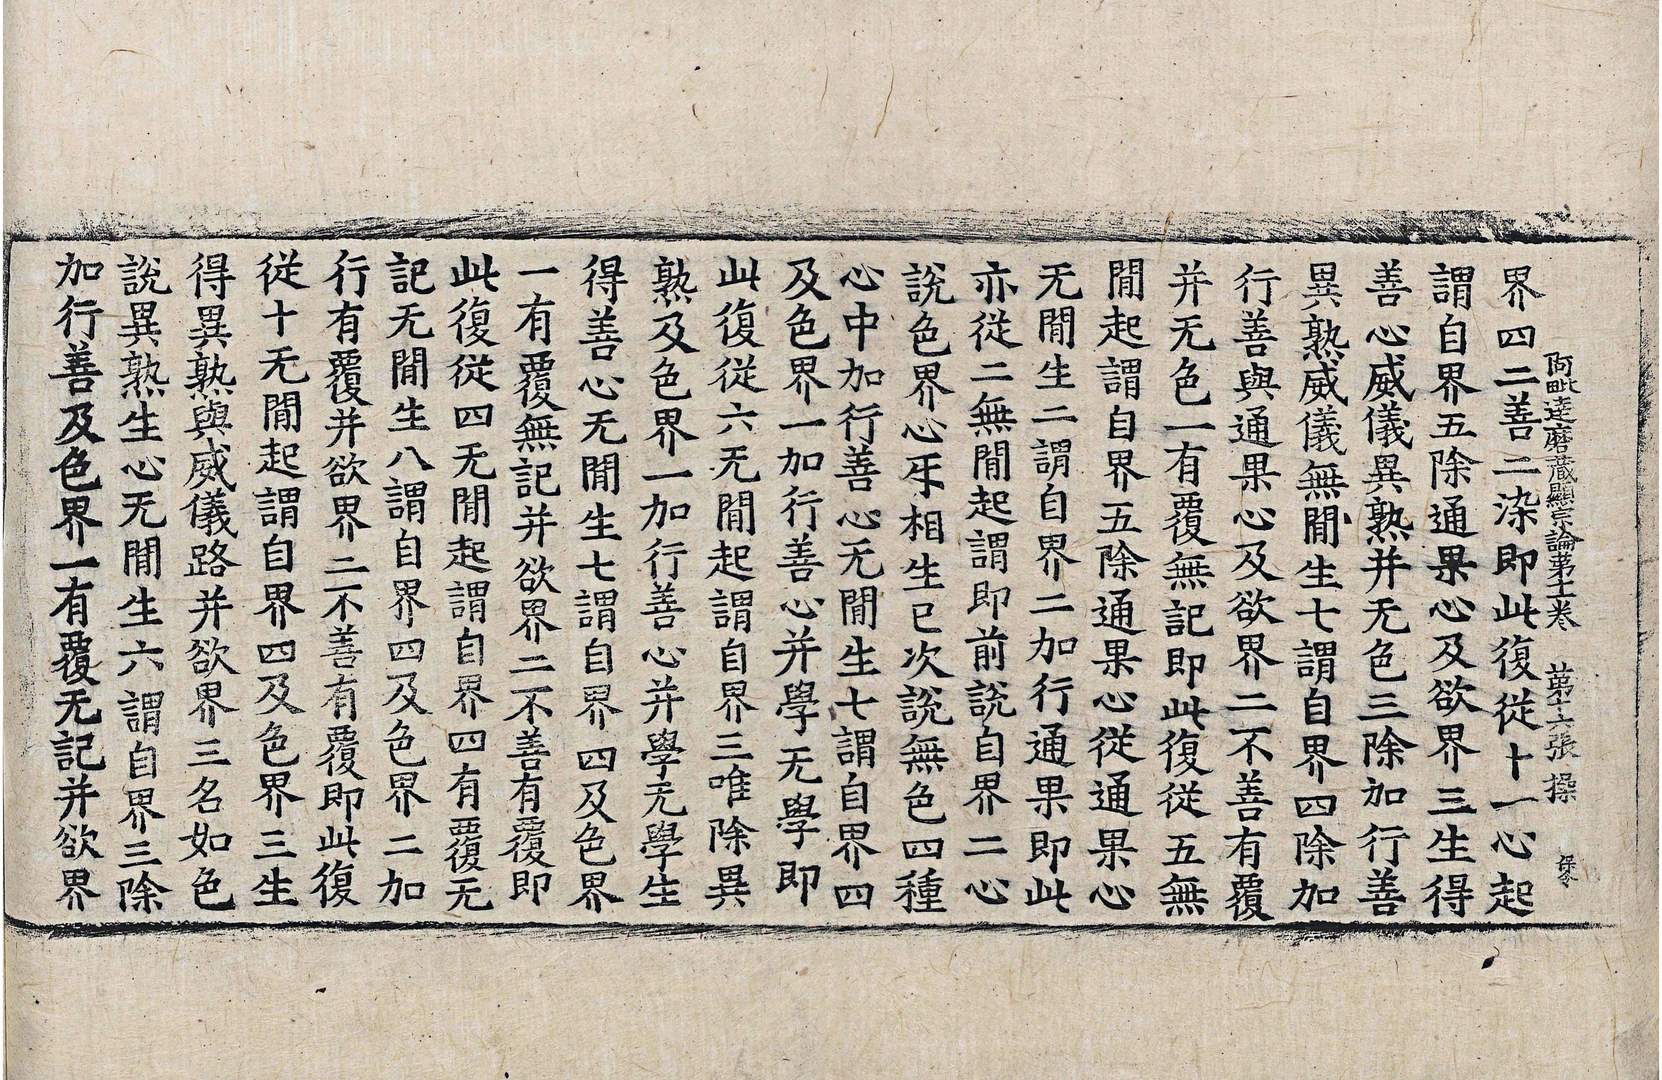 阿毗達磨藏顯宗論第十一卷　第十六張　操
界四二善二染即此復從十一心起
謂自界五除通果心及欲界三生得
善心威儀異熟并无色三除加行善
異熟威儀無間生七謂自界四除加
行善與通果心及欲界二不善有覆
并无色一有覆無記即此復從五無
間起謂自界五除通果心從通果心
无間生二謂自界二加行通果即此
亦從二無間起謂即前說自界二心
說色界心牙相生已次說無色四種
心中加行善心无間生七謂自界四
及色界一加行善心并學无學即
此復從六无間起謂自界三唯除異
熟及色界一加行善心并學无學生
得善心无間生七謂自界四及色界
一有覆無記并欲界二不善有覆即
此復從四无間起謂自界四有覆无
記无間生八謂自界四及色界二加
行有覆并欲界二不善有覆即此復
從十无間起謂自界四及色界三生
得異熟與威儀路并欲界三名如色
說異熟生心无間生六謂自界三除
加行善及色界一有覆无記并欲界